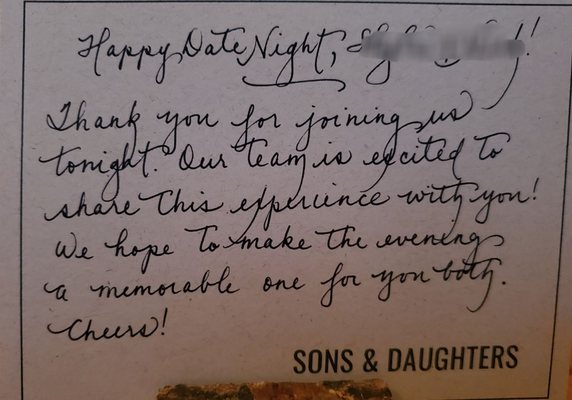 Happy Date Night,
Thank you for joining us
tonight. Our team is excited to
share this experience with you!
We hope to make the evening
a memorable one for you both.
Cheers!
SONS & DAUGHTERS